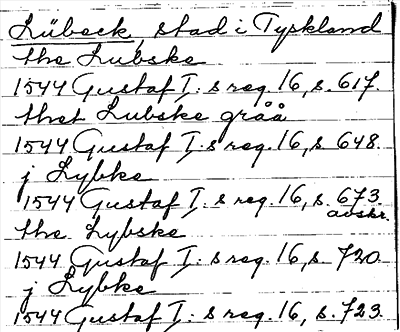 Lübeck, stad i Tyskland
the Lubske
1544 Gustaf I:s reg. 16, s. 617.
thet Lubske gråå
1544 Gustaf I:s reg. 16, s. 648.
j Lybke
1544 Gustaf I:s reg. 16, s. 673.
avskr.
the Lybske
1544 Gustaf I:s reg. 16, s. 720.
j Lybke
1544 Gustaf I:s reg. 16, s. 723.